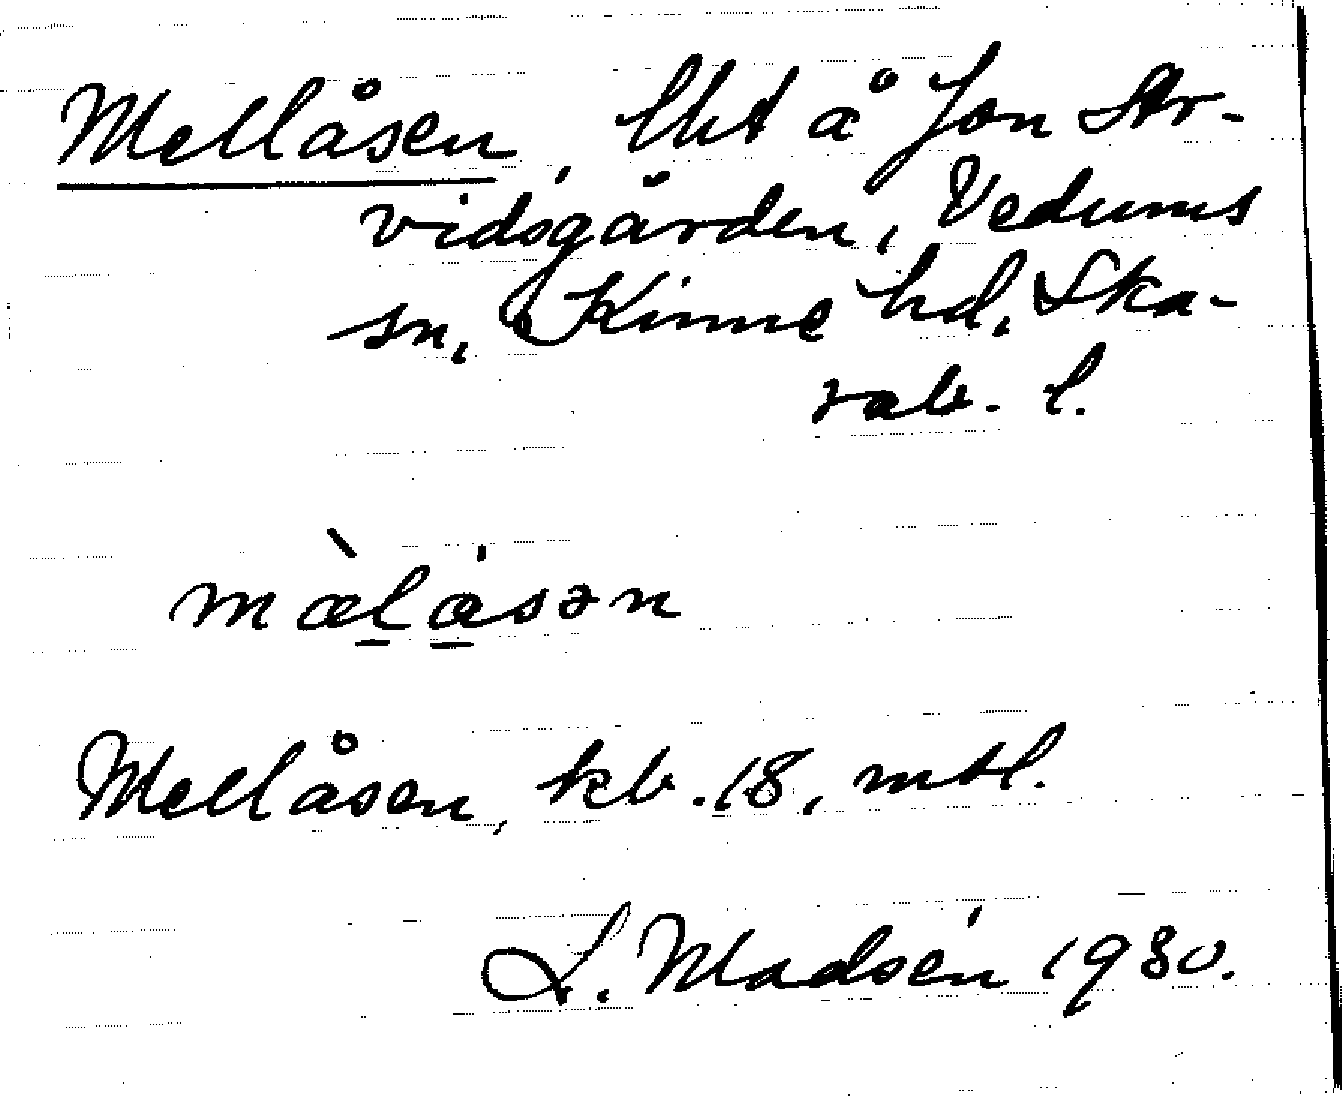 Mellåsen, lht å Jon Ar-
vidsgården, Vedums
sn, Kinne hd, Ska-
rab. l.
mæ̀l̲á̲sən
Mellåsen, kb. 18, mtl.
L. Madsén 1930.